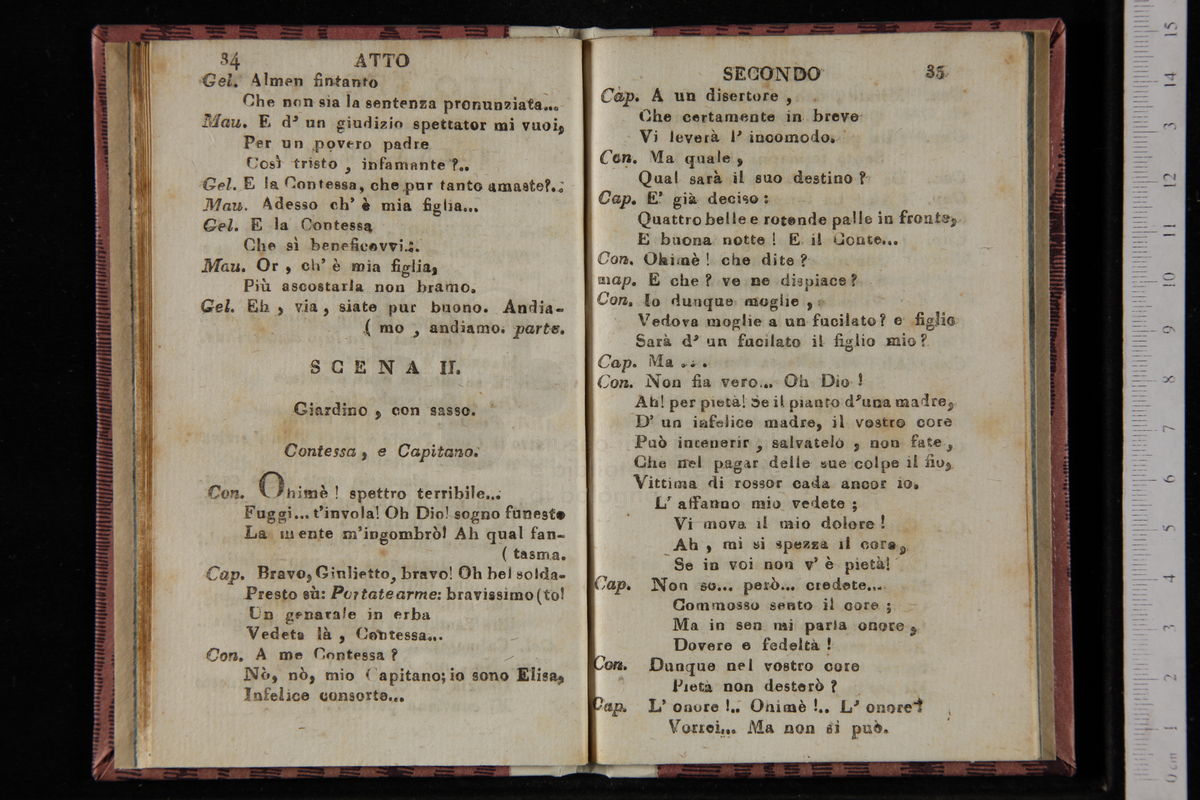 34 ATTO
Gel. Almen fintanto
Che non sia la sentenza pronunziata...
Mau. E d' un giudizio spettator mi vuoi,
Per un povero padre
Così tristo, infamante?..
Gel. E la Contessa, che pur tanto amaste?..
Mau. Adesso ch' è mia figlia...
Gel. E la Contessa
Che sì beneficovvi..
Mau. Or, ch' è mia figlia,
Più ascostarla non bramo.
Gel. Eh, via, siate pur buono. Andia-
( mo, andiamo. parte.
SCENA II.
Giardino, con sasso.
Contessa, e Capitano.
Con. Ohimè! spettro terribile...
Fuggi... t'invola! Oh Dio! sogno funesto
La mente m'ingombrò! Ah qual fan-
( tasma.
Cap. Bravo, Giulietto, bravo! Oh bel solda-
Presto sù: Portatearme: bravissimo (to!
Un genarale in erba
Vedete là, Contessa...
Con. A me Contessa?
Nò, nò, mio Capitano; io sono Elisa,
Infelice consorte...
SECONDO 35
Cap. A un disertore,
Che certamente in breve
Vi leverà l' incomodo.
Con. Ma quale,
Qual sarà il suo destino?
Cap. E' già deciso:
Quattro belle e rotonde palle in fronte,
E buona notte! E il Conte...
Con. Ohimè! che dite?
map. E che? ve ne dispiace?
Con. Io dunque moglie,
Vedova moglie a un fucilato? e figlio
Sarà d' un fucilato il figlio mio?
Cap. Ma ...
Con. Non fia vero... Oh Dio!
Ah! per pietà! Se il pianto d'una madre,
D' un infelice madre, il vostro core
Può intenerir, salvatelo, non fate,
Che nel pagar delle sue colpe il fio,
Vittima di rossor cada ancor io.
L' affanno mio vedete;
Vi mova il mio dolore!
Ah, mi si spezza il core,
Se in voi non v' è pietà!
Cap. Non so... però... credete...
Commosso sento il core;
Ma in sen mi parla onore,
Dovere e fedeltà!
Con. Dunque nel vostro core
Pietà non desterò?
Cap. L' onore!.. Ohimè!.. L' onore!
Vorrei... Ma non si può.
0 cm 1 2 3 4 5 6 7 8 9 10 11 12 13 14 15